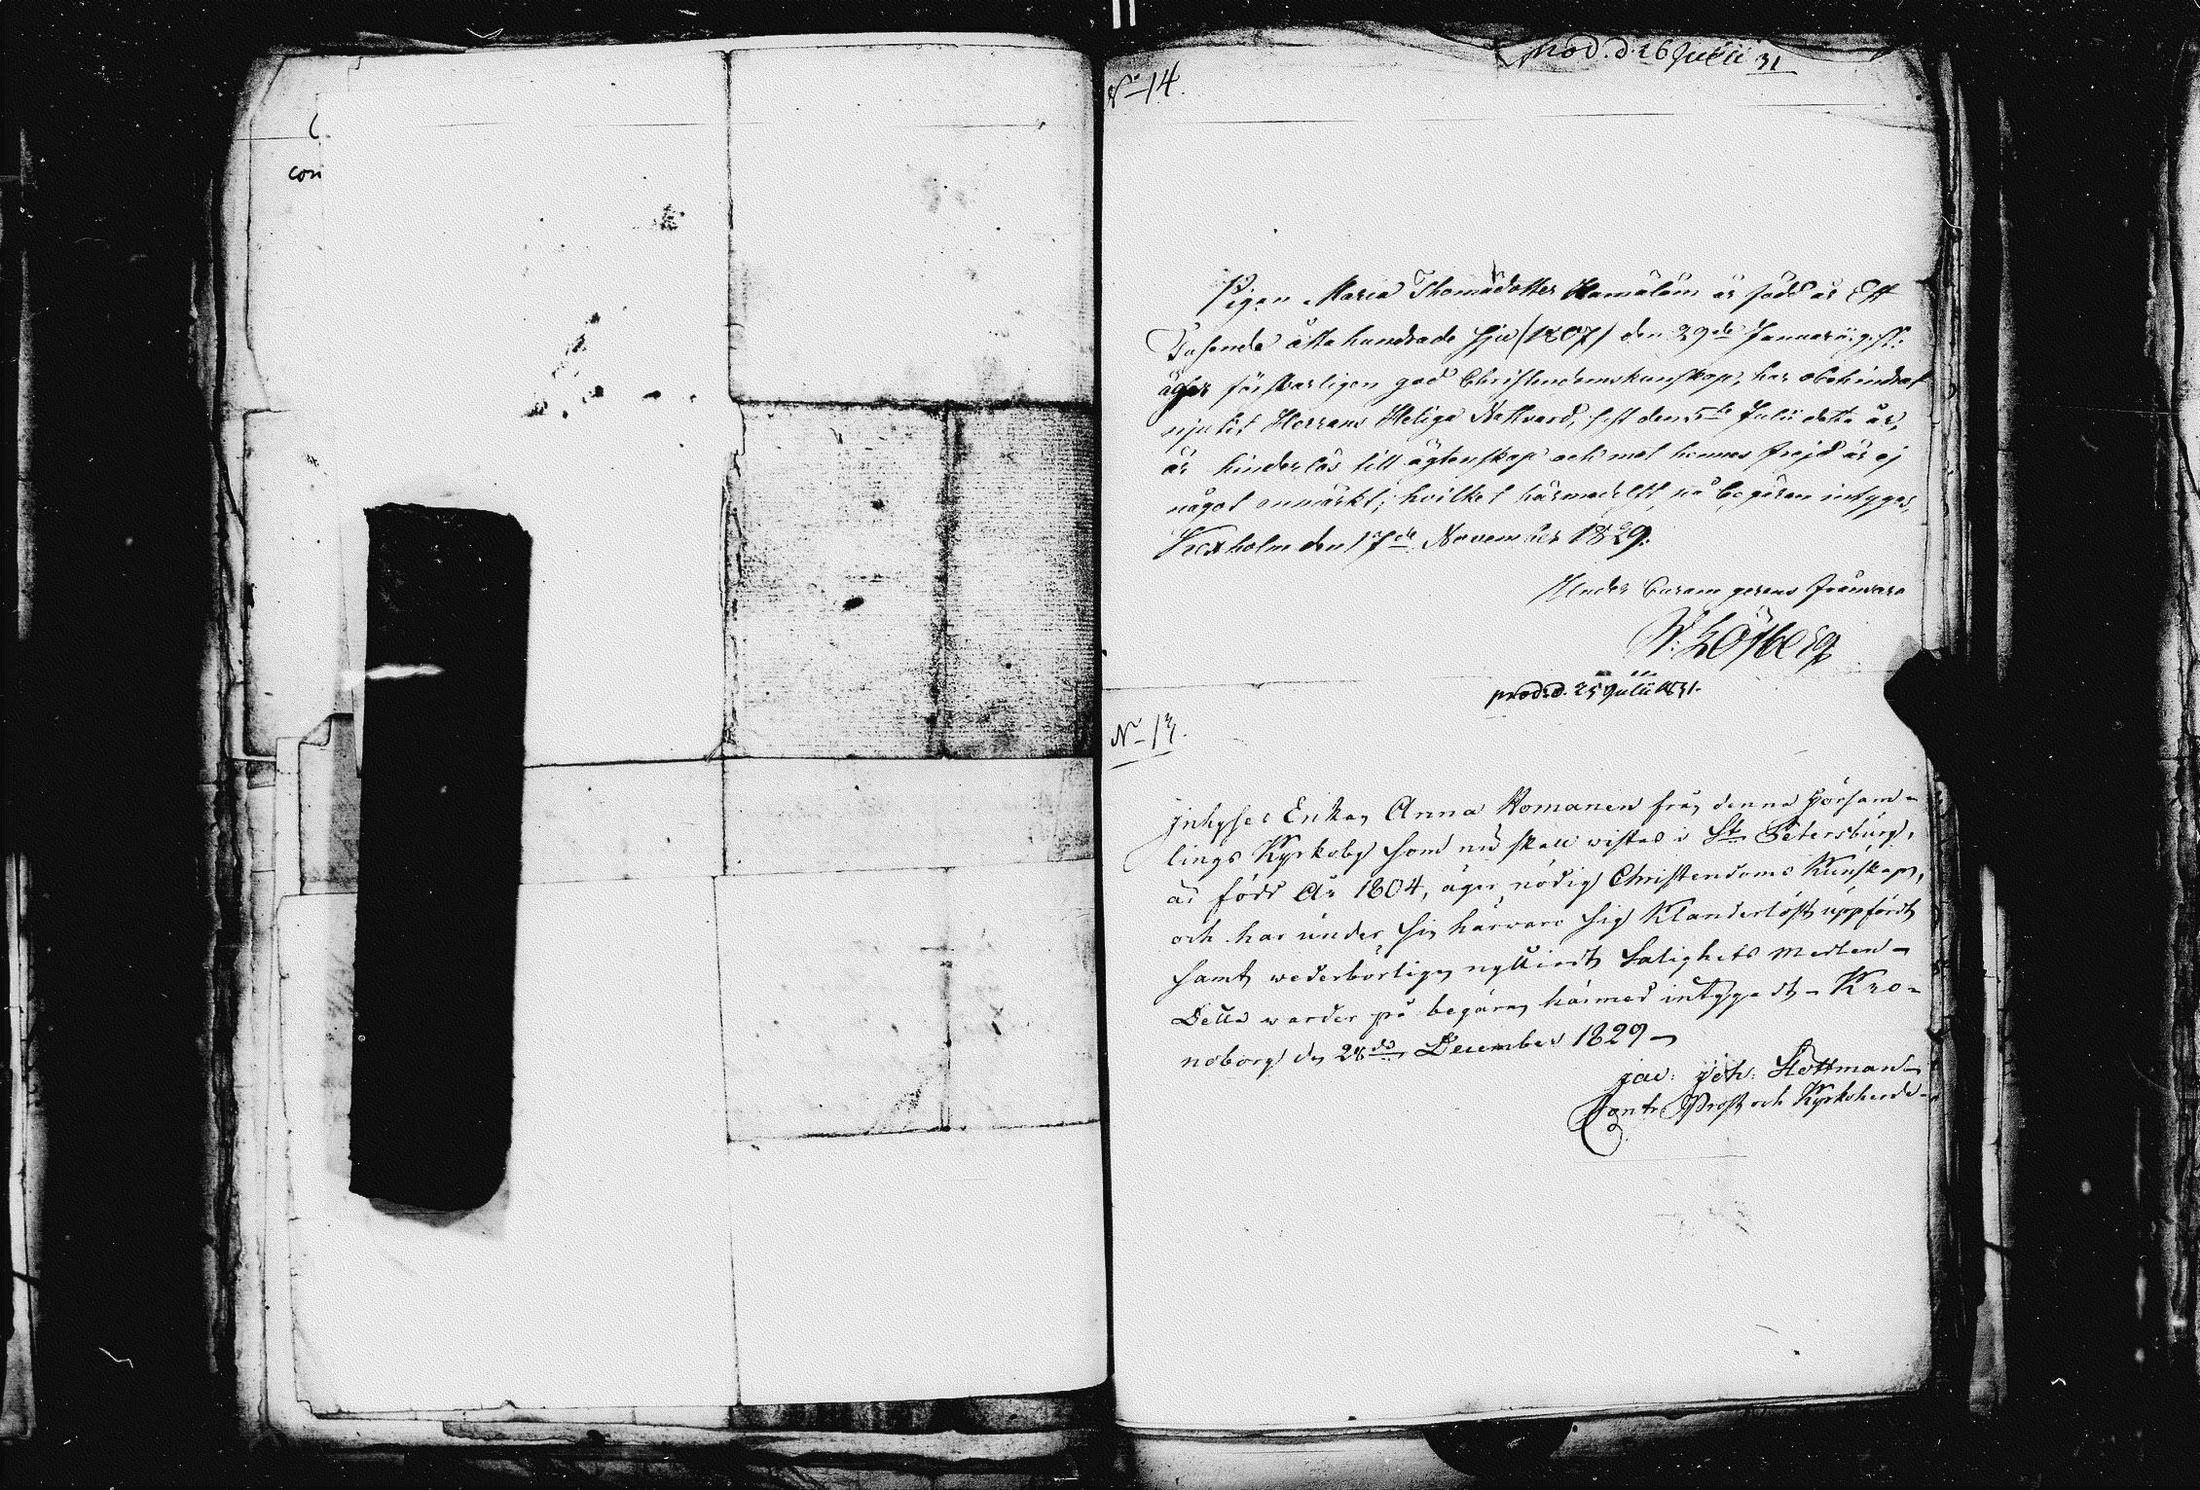 con
prod. d. 26 Julii 31
No 14.
Pigan Maria Thomasdotter Hämäläin är född år Ett
Tusende åtta hundrade sju (1807) den 29de Januarii g. st.
äger försvarligen god Christendomskunskap, har obehindrat
njutit Herrans Heliga Nattvard, sist den 5te Julii detta år,
är hinderlös till ägtenskap och mot hennes frejd är ej
något anmärkt; hvilket härmedelst på begäran intygas,
Kexholm den 17de November 1829.
Under Curam gerens frånvaro
Löfberg
prod. d. 25 Julii 1831.
No 13.
Inhyses Enkan Anna Homanen från denna Försam-
lings Kyrkoby som nu skall wistas i St Petersburg,
är född År 1804, äger nödig Christendoms Kunskap,
och har under sin härvaro sig Klanderlöst uppfördt
samt wederbörligen nyttjadt Salighets Medlen -
Detta warder på begäran härmed intygadt - Kro-
noborg den 28de December 1829 -
Jac: Joh: Hottman
Contr. Prost och Kyrkoherde